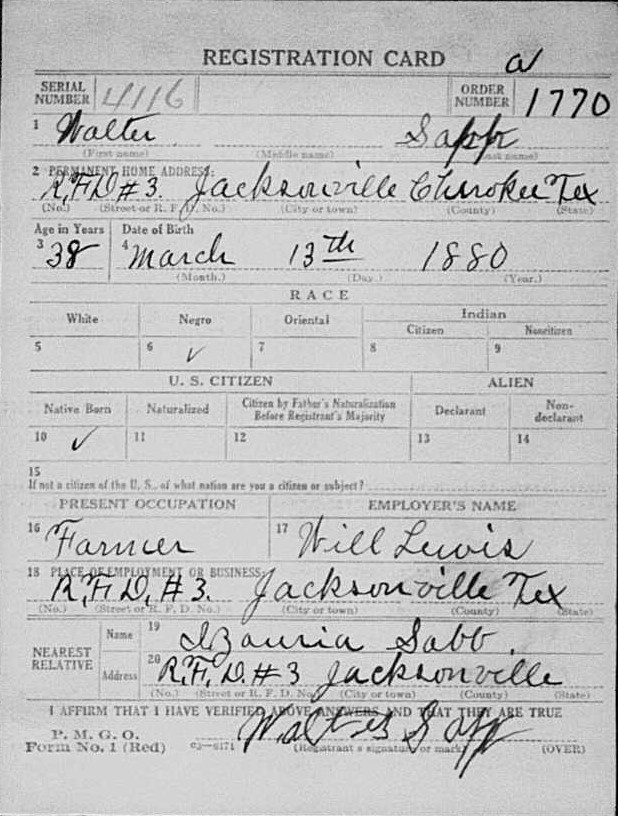 REGISTRATION CARD a
SERIAL NUMBER 4116 ORDER NUMBER 1770
1 Walter Sapp
(First name) (Middle name) (Last name)
2 PERMANENT HOME ADDRESS:
R.F.D. #3. Jacksonville Cherokee Tex
(No.) (Street or R. F. D. No.) (City or town) (County) (State)
Age in Years Date of Birth
3 38 4 March 13th 1880
(Month.) (Day.) (Year.)
RACE
White Negro Oriental Indian
Citizen Noncitizen
5 6 ✓ 7 8 9
U. S. CITIZEN ALIEN
Native Born Naturalized Citizen by Father's Naturalization Before Registrant's Majority Declarant Non-declarant
10 ✓ 11 12 13 14
15
If not a citizen of the U. S., of what nation are you a citizen or subject?
PRESENT OCCUPATION EMPLOYER'S NAME
16 Farmer 17 Will Lewis
18 PLACE OF EMPLOYMENT OR BUSINESS:
R.F.D. #3. Jacksonville Tex
(No.) (Street or R. F. D. No.) (City or town) (County) (State)
NEAREST RELATIVE Name 19 Izauria Sabb.
Address 20 R.F.D. #3 Jacksonville
(No.) (Street or R. F. D. No.) (City or town) (County) (State)
I AFFIRM THAT I HAVE VERIFIED ABOVE ANSWERS AND THAT THEY ARE TRUE
P. M. G. O.
Form No. 1 (Red) 03—6171 Walter Sapp
(Registrant's signature or mark) (OVER)